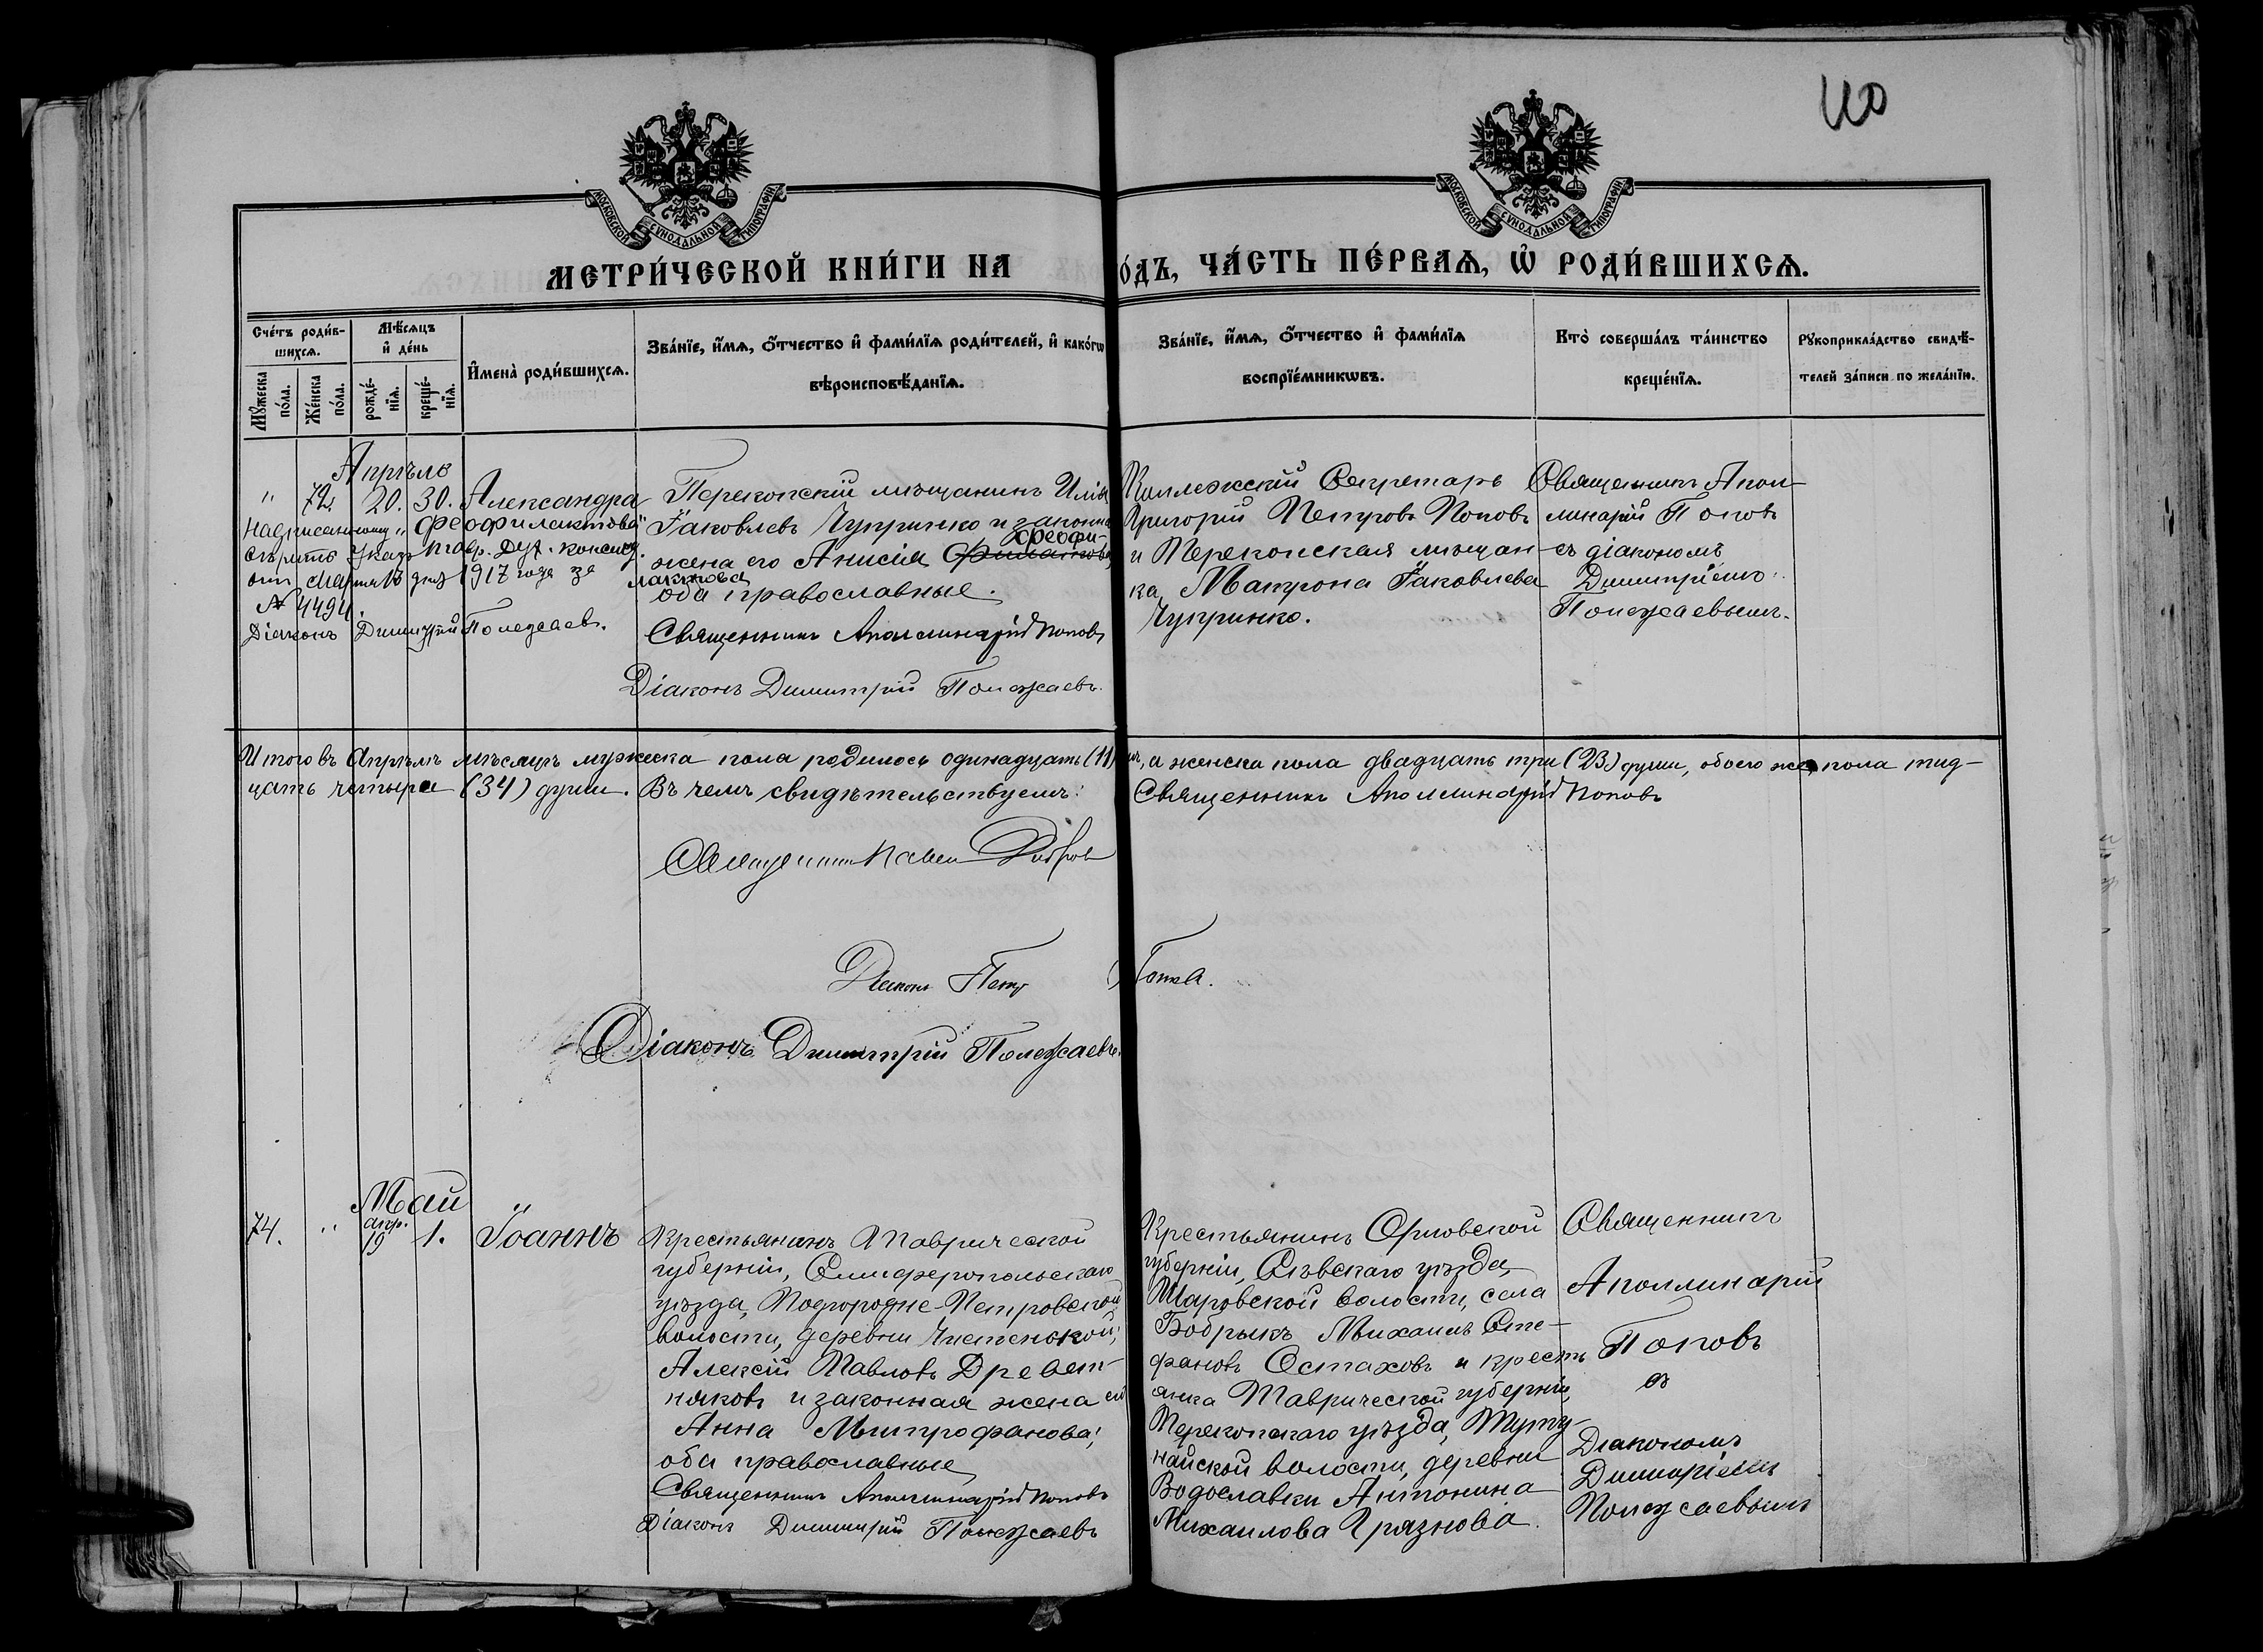 110
МОСКОВСКОЙ СѴНОДАЛЬНОЙ ТИПОГРАФІИ
МОСКОВСКОЙ СѴНОДАЛЬНОЙ ТИПОГРАФІИ
МЕТРИ́ЧЕСКОЙ КНИ́ГИ НА
О́ДЪ, ЧА́СТЬ ПЕ́РВАѦ, Ѽ РОДИ́ВШИХСѦ.
Сче́тъ роди́в-
шихсѧ.
Мꙋ́жеска по́ла.
Же́нска по́ла.
Мѣ́сѧцъ и҆ де́нь
рожде́-нїѧ.
креще́-нїѧ.
И҆мена̀ роди́вшихсѧ.
Зва́нїе, и҆́мѧ, ѻ҆́тчество и҆ фами́лїѧ роди́телей, и҆ како́гѡ
вѣроисповѣ́данїѧ.
Зва́нїе, и҆́мѧ, ѻ҆́тчество и҆ фами́лїѧ
воспрїе́мникѡвъ.
Кто̀ соверша́лъ та́инство
креще́нїѧ.
Рꙋкоприкла́дство свидѣ́-
телей за́писи по жела́нїю.
Апрѣль
" 72. 20. 30. Александра
Надписанному "Феофилактова"
вѣрить. Указ Тавр. Дух. Консис.
отъ марта дня 1917 года за
№ 4494.
Діаконъ Димитрій Полежаевъ.
Перекопскій мѣщанинъ Илія
Іаковлевъ Чупринко и законная
жена его Анисія Феофи-
лактова
оба православные.
Священникъ Аполлинарій Поповъ
Діаконъ Димитрій Полежаевъ.
Коллежскій Секретарь
Григорій Петровъ Поповъ
и Перекопская мѣщан-
ка Матрона Іаковлева
Чупринко.
Священникъ Апол-
линарій Поповъ
съ діакономъ
Димитріемъ
Полежаевымъ.
Итого въ Апрѣлѣ мѣсяцѣ мужеска пола родилось одинадцать (11), а женска пола двадцать три (23) души, обоего же пола трид-
цать четыре (34) души. Въ чемъ свидѣтельствуемъ: Священникъ Аполлинарій Поповъ
Священникъ Павел
Діаконъ Петр
Діаконъ Димитрій Полежаевъ.
Май
74. " апр. 19 1. Іоаннъ
Крестьянинъ Таврической
губерніи, Симферопольскаго
уѣзда, Подгородне-Петровской
волости, деревни Чистенькой,
Алексій Павловъ Древет-
няковъ и законная жена его
Анна Митрофанова;
оба православные
Священникъ Аполлинарій Поповъ
Діаконъ Димитрій Полежаевъ
Крестьянинъ Орловской
губерніи, Сѣвскаго уѣзда,
Шаровской волости, села
Бобрыкъ Михаилъ Сте-
фановъ Остаховъ и кресть
янка Таврической губерніи,
Перекопскаго уѣзда,
найской волости, деревни
Водославки Антонина
Михаилова Грязнова.
Священникъ
Аполлинарій
Поповъ
съ
Діакономъ
Димитріемъ
Полежаевымъ